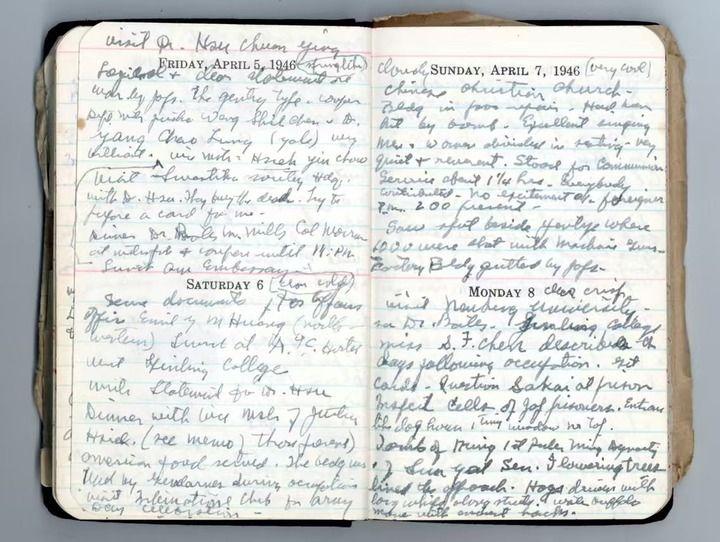 visit Dr. Hsu Chuan Ying
FRIDAY, APRIL 5, 1946 (springlike)
& clear
war by Japs. The gentry type. Confer
with Wang Shih Chen & Dr.
Yang Chao Lung (Yale) very
brilliant. Vice Minis. Hsieh Yin Chow
Visit Swastika Society Hdq.
with Dr. Hsu. They bury the dead. Try to
figure a card for me.
Dinner Dr. Bates Mr. Mills Col Morrow
at midnight & confer until 11 PM
Am Embassy
SATURDAY 6 (clear cold)
Serve documents, For Affairs
Office Emily M Huang (north-
western) at A.F.C. Hostel
visit Ginling College
with for Dr. Hsu
Dinner with Vice Minis of Justice
Hsieh. (see memo) those
American food served. The bldg was
used by Gendarmes during occupation
visit International Club for Army
Day celebration -
Cloudy SUNDAY, APRIL 7, 1946 (very cool)
Chinese Christian Church -
Bldg in poor repair. Had been
hit by bomb. Excellent singing
Men & women divided in seating. very
quiet & reverent. Stood for Communion
Service about 1 1/4 hrs. Everybody
contributed. No excitement at foreigner
200 present
Saw spot beside Yangtze where
were shot with machine guns
Factory Bldg gutted by Japs -
MONDAY 8 clear crisp
Visit Nanking University -
see Dr Bates. Ginling College
Miss S. F. Chen described the
days following occupation. get
cards - Question Sakai at prison
Inspect cells of Jap prisoners. Entrance
like dog house, tiny window no top.
Tomb of Ming 1st Ruler Ming Dynasty
& Sun Yat Sen. Flowering trees
lined the approach. Hogs driven with
long whip along street. water buffalo
move with ancient hacks.